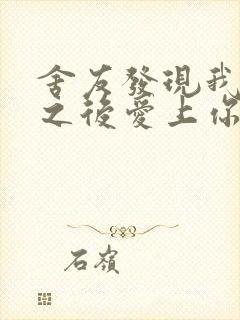 舍友發現我
之後愛上你
石嶺